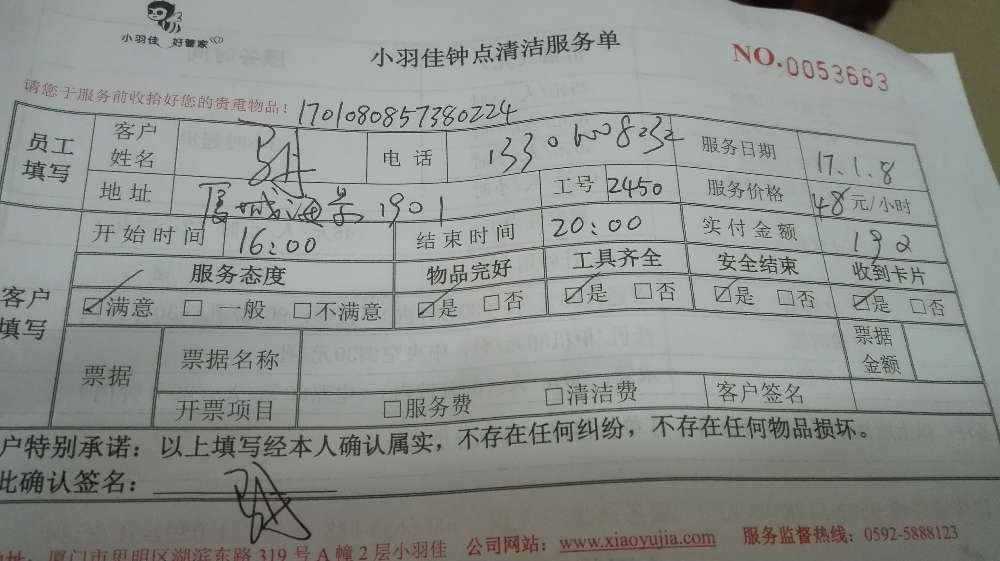 小羽佳 好管家
小羽佳钟点清洁服务单
NO.0053663
请您于服务前收拾好您的贵重物品：1701080857380224
员工填写 客户姓名 电话 服务日期 17.1.8
地址 1901 工号 2450 服务价格 48元/小时
开始时间 16:00 结束时间 20:00 实付金额 192
客户填写 服务态度 物品完好 工具齐全 安全结束 收到卡片
☑满意 □一般 □不满意 ☑是 □否 ☑是 □否 ☑是 □否 ☑是 □否
票据 票据名称 票据金额
开票项目 □服务费 □清洁费 客户签名
户特别承诺：以上填写经本人确认属实，不存在任何纠纷，不存在任何物品损坏。
此确认签名：
地址：厦门市思明区湖滨东路319号A幢2层小羽佳 公司网站：www.xiaoyujia.com 服务监督热线：0592-5888123